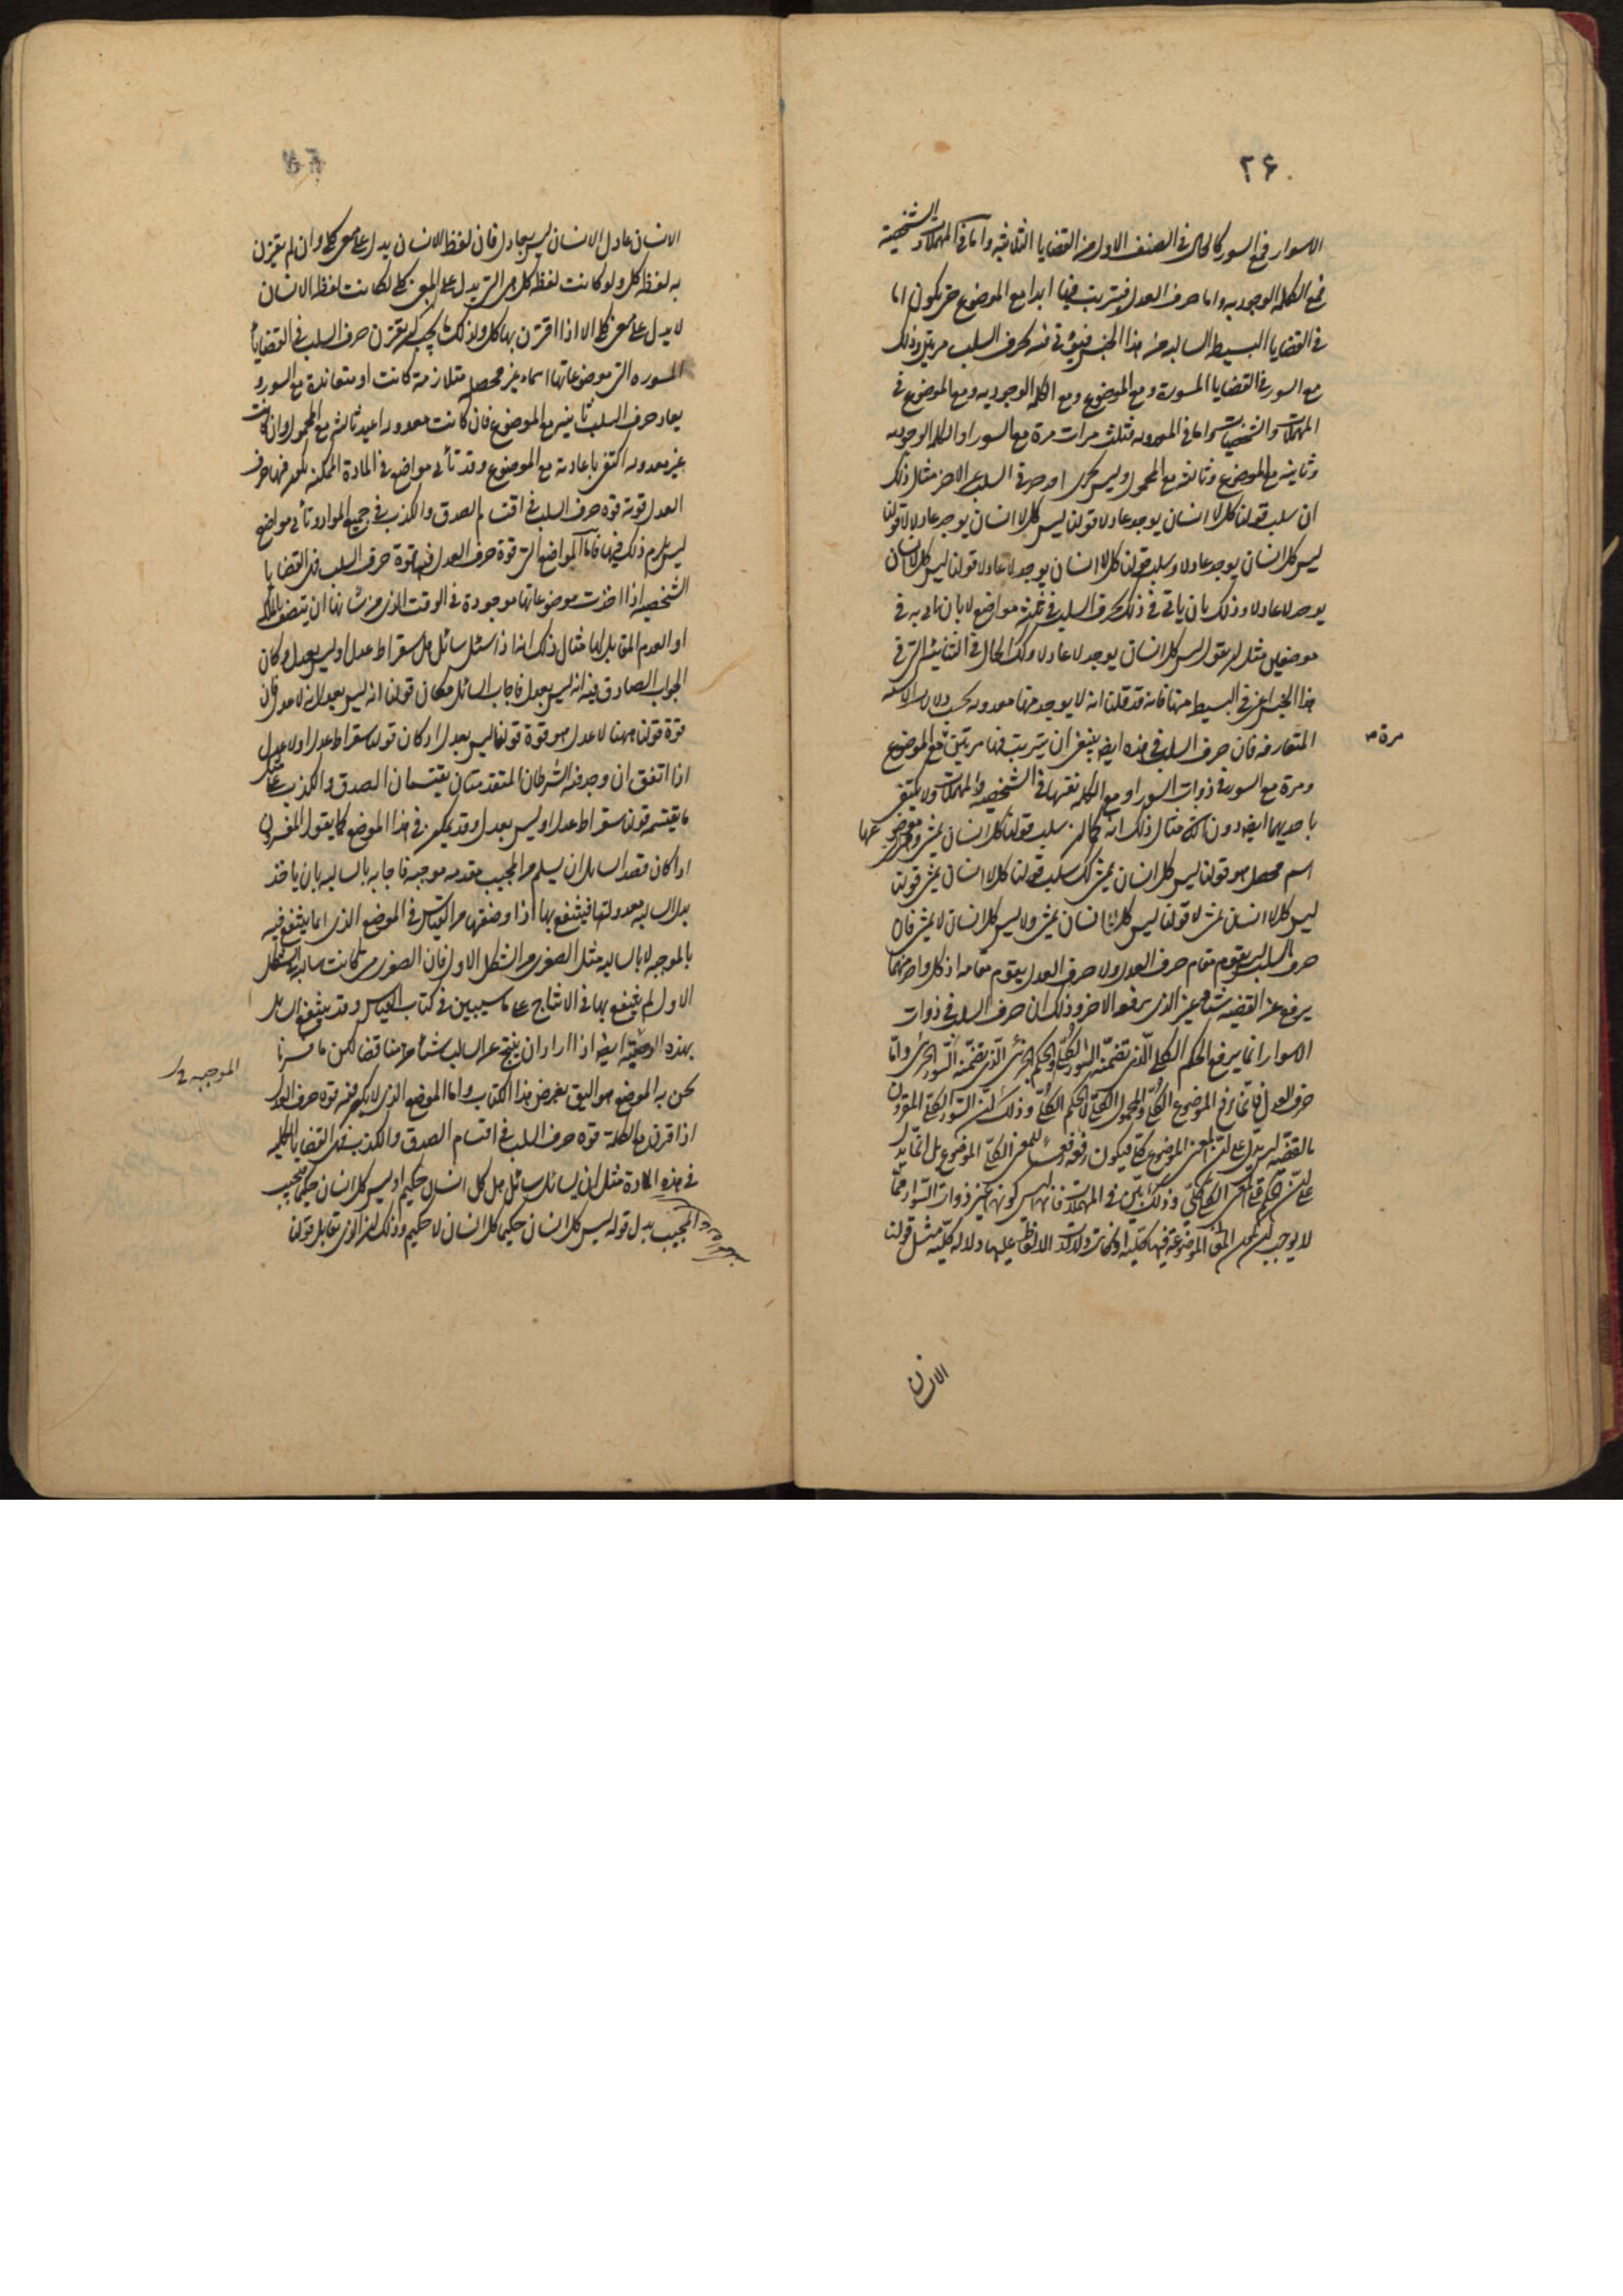 ۲۶
الاسوار فمع السور كالحال فى الصنف الاول من القضايا الثلاثية واما فى المهملات والشخصية
فمع الكلمة الوجودية واما حرف العدل فيترتب فيها ابدا مع الموضوع حتى يكون اما
فى القضايا البسيط السالبة من هذا الجنس فيؤتى فيه بحرف السلب مرتين وذلك
مع السور فى القضايا المسورة ومع الموضوع ومع الكلمة الوجودية ومع الموضوع فى
المهملات والشخصيات واما فى المعدولة فثلث مرات مرة مع السور او الكلمة الوجودية
وثانية مع الموضوع وثالثة مع المحمول وليس يجزى احد حرفى السلب عن الاخر مثال ذلك
ان سلب قولنا كل لا انسان يوجد عادلا قولنا ليس كل لا انسان يوجد عادلا لا قولنا
ليس كل انسان يوجد عادلا وسلب قولنا كل لا انسان يوجد لا عادلا قولنا ليس كل لا انسان
يوجد لا عادلا وذلك بان ياتى فى ذلك بحرف السلب فى ثلثة مواضع لا بان ناتى به فى
موضعين مثل ان يقول ليس كل انسان يوجد لا عادلا وكذلك الحال فى الثنائية التى فى
هذا الجنس اعنى البسيطة منها فانه قد قلنا انه لا يوجد منها معدولة بحسب دلالات الالسنة
المتعارفة فان حرف السلب فى هذه ايضا ينبغى ان يترتب فيها مرتين مع الموضوع
مرة
ومرة مع السور فى ذوات السور او مع الكلمة نفسها فى الشخصية والمهملات ولا يكتفى
باحديهما ايضا دون الثانى مثال ذلك انه كما ان سلب قولنا كل انسان يمشى وموضوعها
اسم محصل هو قولنا ليس كل انسان يمشى كذلك سلب قولنا كل لا انسان يمشى قولنا
ليس كل لا انسان يمشى لا قولنا ليس كل انسان يمشى ولا ليس كل انسان لا يمشى فان
حرف السلب ليس يقوم مقام حرف العدل ولا حرف العدل يقوم مقامه اذ كل واحد منهما
يرفع عن القضية شيئا غير الذى يرفعه الاخر وذلك ان حرف السلب فى ذوات
الاسوار انما يرفع الحكم الكلى الذى تضمنه السور الكلى او الحكم الجزئى الذى تضمنه السور الجزئى واما
حرف العدل فانما يرفع الموضوع الكلى او المحمول الكلى لا الحكم الكلى وذلك ان السور الكلى المقرون
بالقضية ليس يدل على ان المعنى الموضوع كلى فيكون رفعه رفعا للمعنى الكلى الموضوع بل انما يدل
على ان الحكم على المعنى الكلى كلى وذلك بين فى المهملات فانها ليس كونها من غير ذوات الاسوار مما
لا يوجب ان تكون المعانى الموضوعة فيها كلية او كانت دلالات الالفاظ عليها دلالة كلية مثل قولنا
الانسان
الانسان عادل الانسان ليس بعادل فان لفظ الانسان يدل على معنى كلى وان لم يقترن
به لفظة كل ولو كانت لفظة كل هى التى يدل على المعنى الكلى لكانت لفظ الانسان
لا يدل على معنى كلى الا اذا اقترن بها كل ولذلك يجب ان يقترن حرف السلب فى القضايا
المسورة التى موضوعاتها اسماء غير محصلة متلازمة كانت او متعاندة مع السور و
يعاد حرف السلب ثانية مع الموضوع فان كانت معدولة اعيد ثالثة مع المحمول وان كانت
غير معدولة اكتفى باعادته مع الموضوع وقد تأتى مواضع فى المادة الممكنة يكون فيها حرف
العدل قوته قوة حرف السلب فى اقتسام الصدق والكذب فى جميع المواد وتأتى مواضع
ليس يلزم ذلك فيها فاما المواضع التى قوة حرف العدل فيها قوة حرف السلب فهى القضايا
الشخصية اذا اخذت موضوعاتها موجودة فى الوقت الذى من شانها ان يتصف بالملكة
او العدم المقابل لها مثال ذلك انه اذا سئل سائل هل سقراط عدل او ليس بعدل وكان
الجواب الصادق فيه انه ليس بعدل فاجاب السائل مكان قولنا انه ليس بعدل لانه لا عدل فان
قوة قولنا ههنا لا عدل هو قوة قولنا ليس بعدل اذ كان قولنا سقراط عدل او لا عدل
اذا اتفق ان وجد فيه الشرطان المتقدمتان يقتسمان الصدق والكذب على مثل
ما يقتسم قولنا سقراط عدل او ليس بعدل وقد يمكن فى هذا الموضع كما يقول المفسرون
اذا كان قصد السائل ان يتسلم من المجيب مقدمة موجبة فاجابه بالسالبة بان ياخذ
بدل السالبة معدولتها فينتفع بها اذا وضعها من القياس فى الموضع الذى انما ينتفع فيه
بالموجبة لا بالسالبة مثل الصغرى من الشكل الاول فان الصغرى متى كانت سالبة فى الشكل
الاول لم ينتفع بها فى الانتاج على ما سيبين فى كتاب القياس وقد ينتفع السائل
بهذه الوصية ايضا اذا اراد ان ينتج عن السالب شيئا مناقضا لكن ما فسرنا
الموجبة
نحن به الموضع هو اليق بغرض هذا الكتاب واما الموضع الذى لا يكون فيه قوة حرف العدل
اذا قرن مع الكلمة قوة حرف السلب فى اقتسام الصدق والكذب فهى القضايا الكلية
فى هذه المادة مثل ان يسائل سائل هل كل انسان حكيم او ليس كل انسان حكيما فيجيب
المجيب بدل قوله ليس كل انسان حكيما كل انسان لا حكيم وذلك ان الذى يقابل قولنا